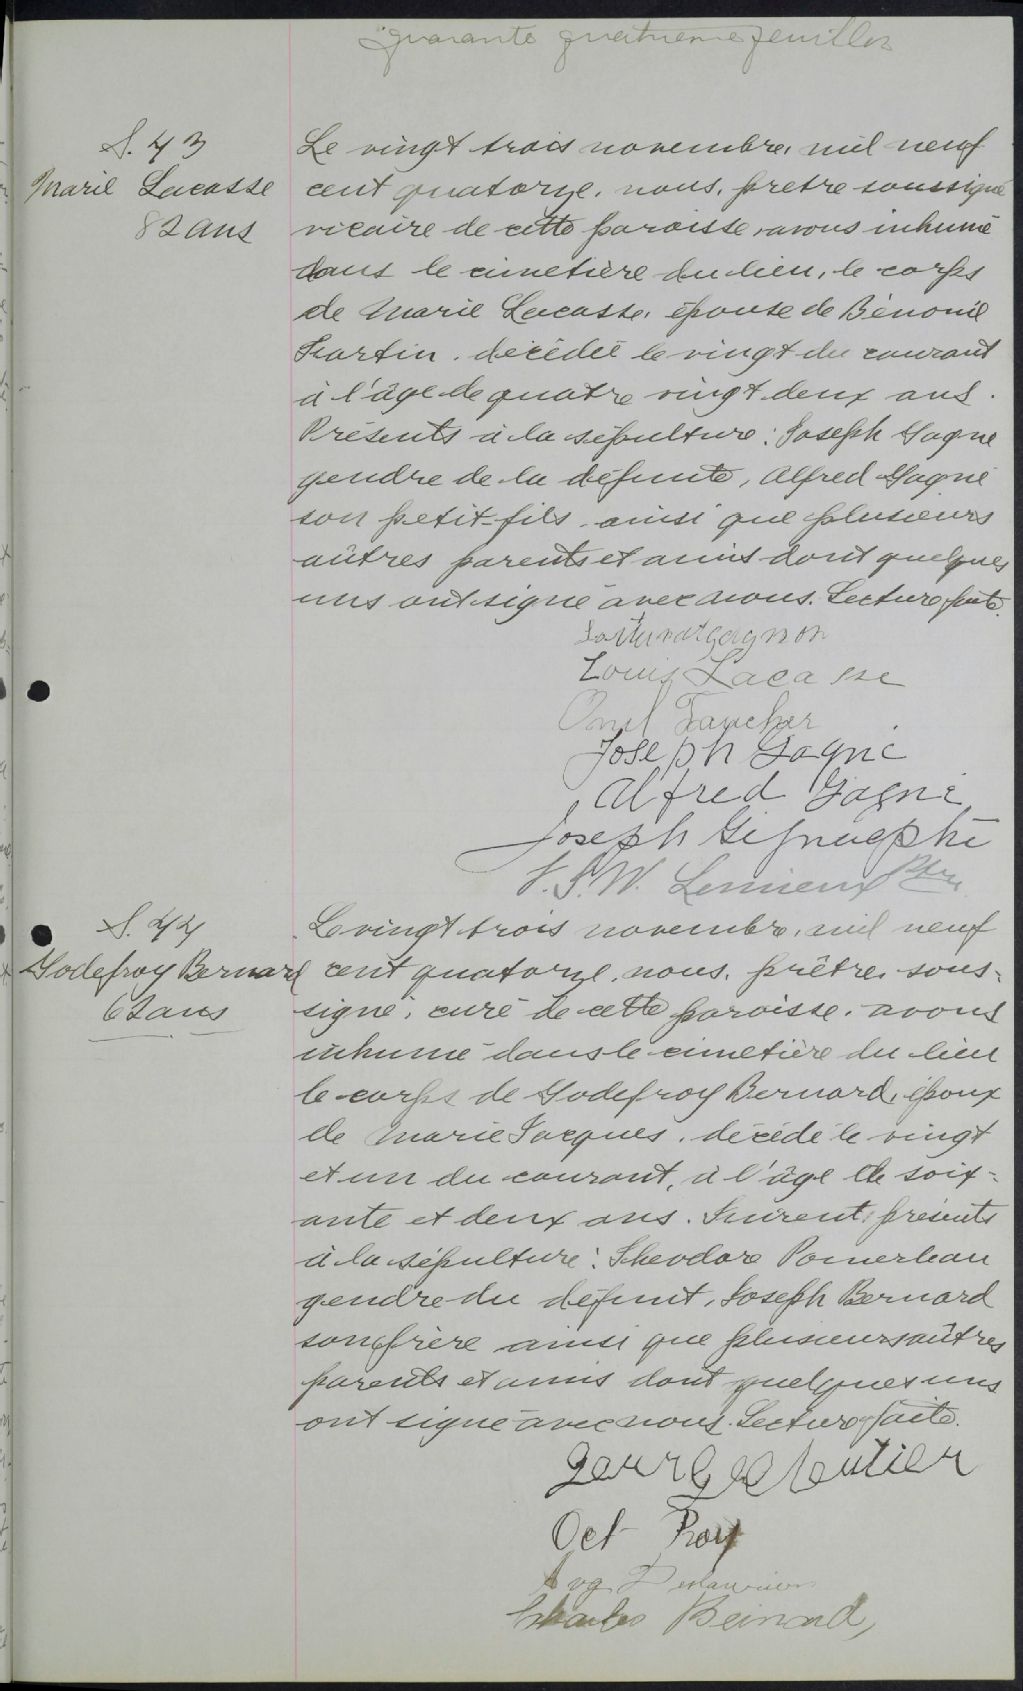 quarante quatrieme feuillet
S. 43
Marie Lacasse
82 ans
Le vingt trois novembre, mil neuf
cent quatorze, nous, prêtre soussigné
vicaire de cette paroisse, avons inhumé
dans le cimetière du lieu, le corps
de Marie Lacasse, épouse de Bénonie
décédée le vingt du courant
à l'âge de quatre vingt deux ans.
Présents à la sépulture: Joseph Gagné
gendre de la défunte, Alfred Gagné
son petit-fils, ainsi que plusieurs
aûtres parents et amis dont quelques
uns ont signé avec nous. Lecture faite.
Gagnon
Louis Lacasse
Onil Faucher
Joseph Gagné
Alfred Gagné
Joseph
Lemieux Ptre
S. 44
Godefroy Bernard
62 ans
Le vingt trois novembre, mil neuf
cent quatorze, nous, prêtre, sous-
signé, curé de cette paroisse, avons
inhumé dans le cimetière du lieu
le corps de Godefroy Bernard, époux
de Marie Jacques, décédé le vingt
et un du courant, à l'âge de soix-
ante et deux ans. Furent présents
à la sépulture: Théodore Pomerleau
gendre du défunt, Joseph Bernard
son frère ainsi que plusieurs aûtres
parents et amis dont quelques uns
ont signé avec nous. Lecture faite.
Oct Roy
Charles Bernard,